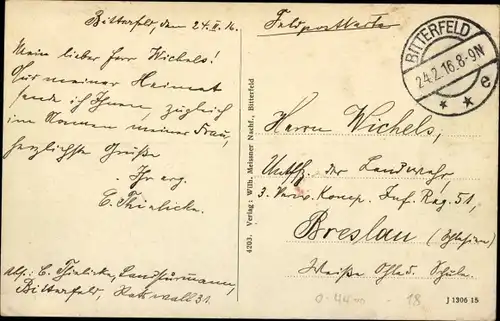 Bitterfeld, den 24.II.16.
Mein lieber Herr Wichels!
Aus meiner Heimat
sende ich Ihnen, zugleich
im Namen meiner Frau,
herzlichste Grüße
Ihr erg.
E. Thielicke.
Abs: E. Thielicke, Landsturmmann,
Bitterfeld, 31
4203. Verlag: Wilh. Meissner Nachf., Bitterfeld
Feldpostkarte
BITTERFELD
24.2.16.8-9N
e
Herrn Wichels,
Untffz. der Landwehr,
3. Komp. Inf. Reg. 51,
Breslau (Schlesien)
Weiße Ohle Schule.
18
J 1306 15